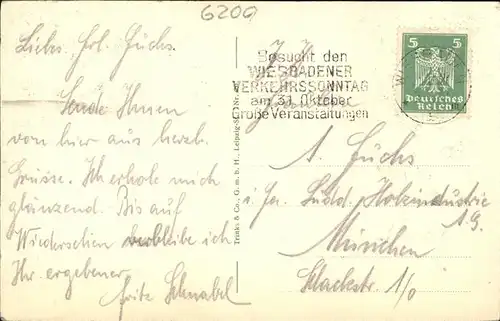 6200
Liebes Frl. Fuchs.
Sende Ihnen
von hier aus herzl.
Grüsse. Ich erhole mich
glänzend. Bis auf
Wiedersehen verbleibe ich
Ihr ergebener
Fritz Schnabel
Trinks & Co., G. m. b. H., Leipzig
Besucht den
WIESBADENER
VERKEHRSSONNTAG
am 31. Oktober
Große Veranstaltungen
5 5
Deutsches
Reich
A. Fuchs
i. Fa. Südd. Holzindustrie
A.G.
München
1/0